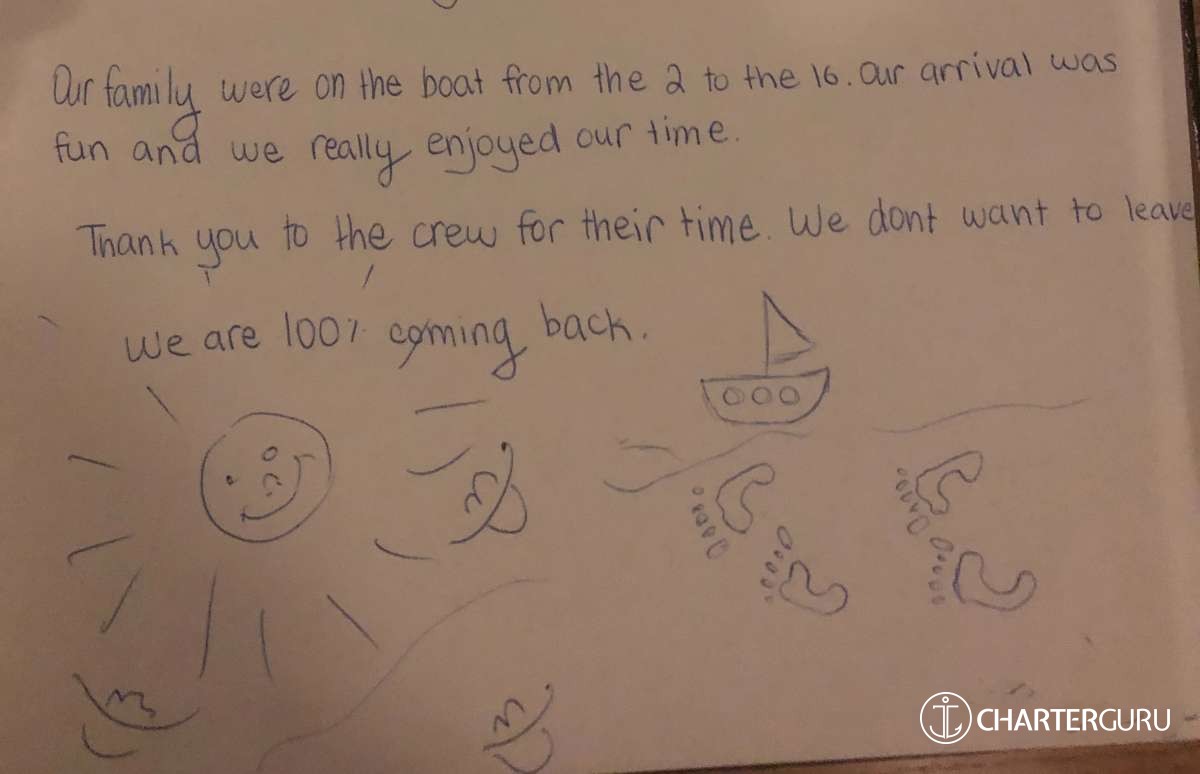 Our family were on the boat from the 2 to the 16. Our arrival was
fun and we really enjoyed our time.
Thank you to the crew for their time. We dont want to leave
We are 100% coming back.
CHARTERGURU